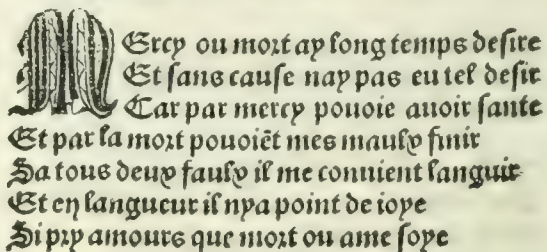 MErcy ou mort ay long temps desire
Et sans cause nay pas eu tel desir
Car par mercy pouoie auoir sante
Et par la mort pouoiẽt mes maulx finir
Sa tous deux faulx il me conuient languir
Et en langueur il nya point de ioye
Si pry amours que mort ou ame soye